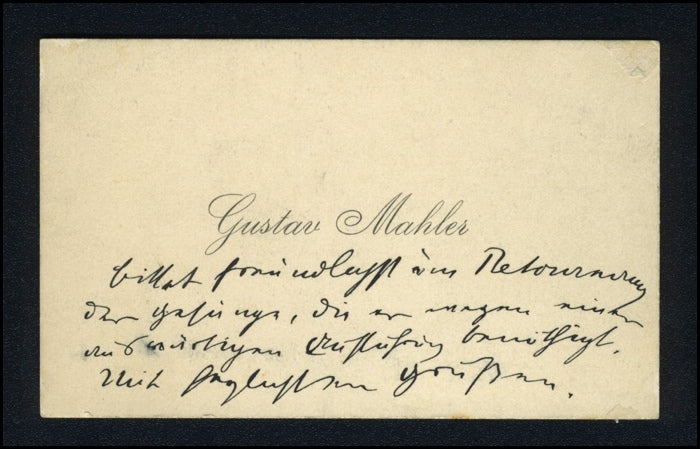 Gustav Mahler
bittet freundlichst um Retournirung
der Gesänge, die er wegen einer
auswärtigen Aufführung benöthigt.
Mit herzlichsten Grüßen.